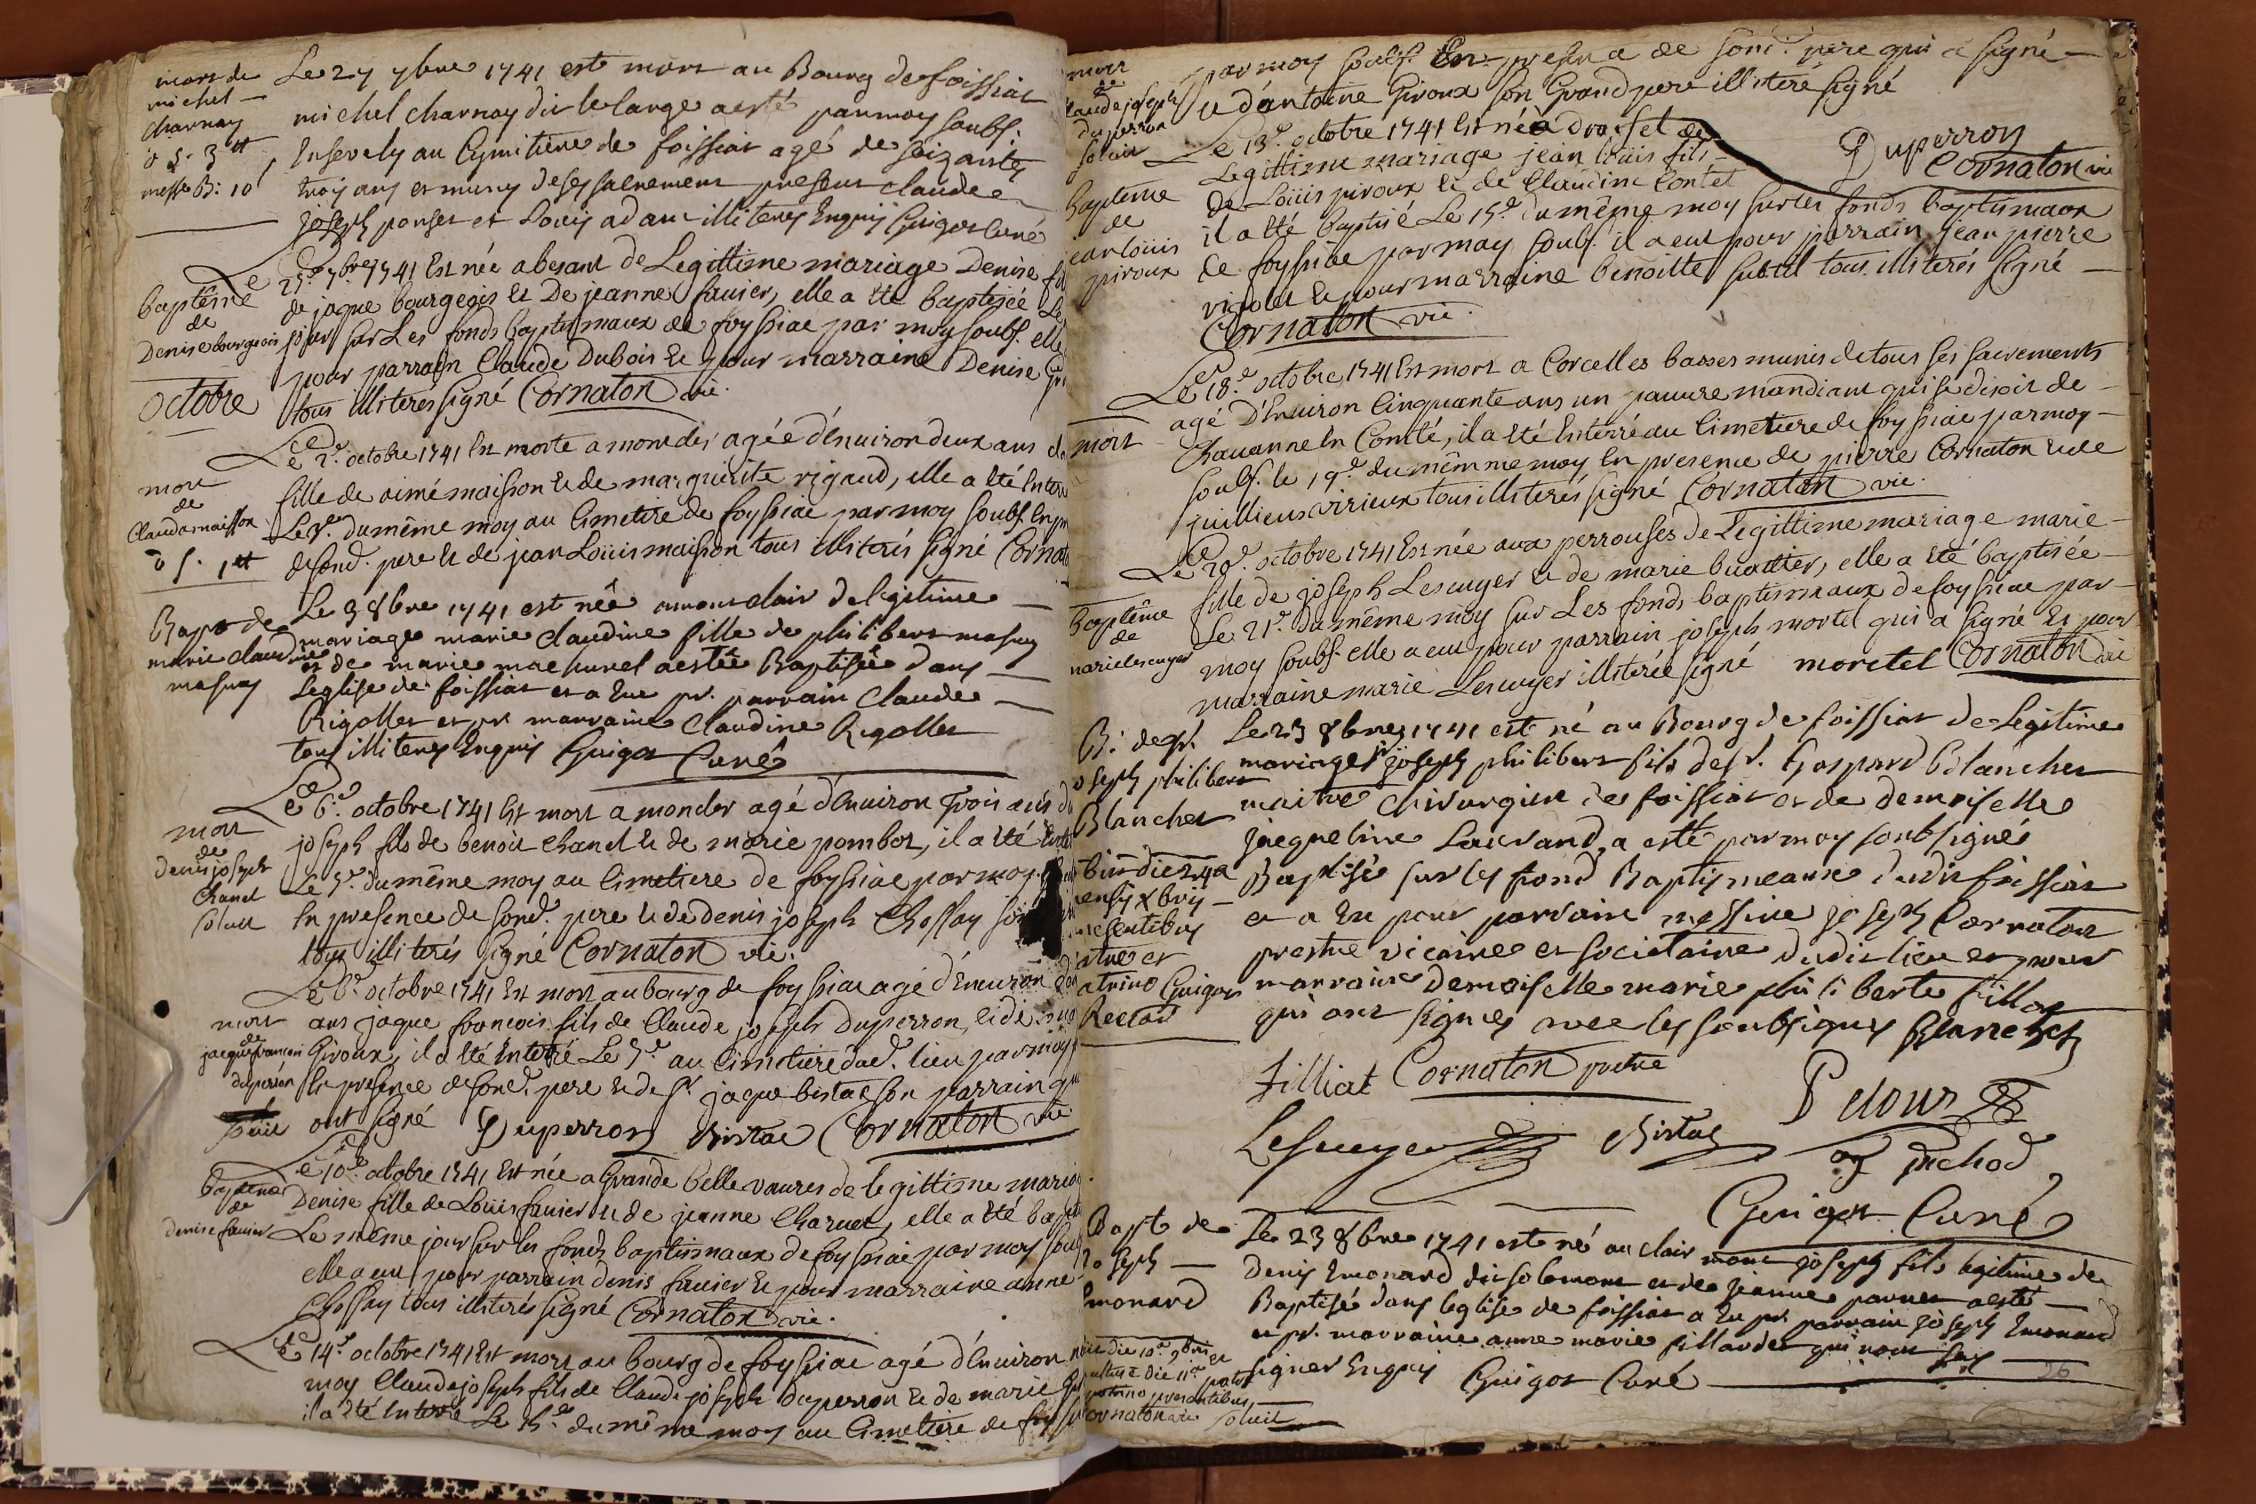 mort de
michel
charnay
messe B: 10
Le 27 7bre 1741 est mort au Bourg de foissiat
michel charnay dit le large a esté par moy soubs.
Ensevely au Cymitiere de foissiat agé de soixante
trois ans et muny de ses sacrement present claude
joseph ponset et Louis adam illiterez Enquis Guigot Curé
baptême
de
Denise bourgeois
Le 25.e 7bre 1741 Est née a besant de Legittime mariage Denise
de jaque bourgeois et De jeanne fauier, elle a été baptisée Le
jour sur Les fonds baptismaux de foyssiac par moy soubs. elle
pour parrain Claude Dubois et pour marraine Denise
tous illiterés signé Cornaton vic.
Octobre
mort
de
Clauda maisson
Le 2.e octobre 1741 Est morte a montdes agée d'Enuiron deux ans
fille de aimé maisson et de marguerite rigaud, elle a été
Le 3.e du même moy au Cimetiere de foyssiac par moy soubs.
de sond. pere et de jean Loüis maison tous illiterés signé
Bapt de
marie claudine
masuy
Le 3 8bre 1741 est née a mont clair de legitime
mariage marie claudine fille de philibert masuy
et de marie mae a estée Baptisée dans
Leglise de foissiat et a Eue pr. parrain Claude
Rigollet et pr marraine Claudine Rigollet
tous illiterez Enquis Guigot Curé
mort
de
denis joseph
Chanel
soluit
Le 6.e octobre 1741 Est mort a mondes agé d'Enuiron trois ans
joseph fils de benoit Chanel et de marie pombot, il a été
Le 7.e du même moy au Cimetiere de foyssiac par moy
En presence de sond. pere et de denis joseph Chossay
tous illiterés signé Cornaton vic.
mort
de
jacque françois
duperron
Le 6.e octobre 1741 Est mort au bourg de foyssiac agé d'Enuiron
ans jaque françois fils de Claude joseph Duperron, et de
Giroux, il a été Enterré Le 7.e au Cimetiere dud. lieu par moy
En presence de sond. pere et de Sr jaque bistac son parrain
ont signé Duperron Bistac Cornaton vic.
baptême
de
denise fauier
Le 10.e octobre 1741 Est née a Grande belle vaures de legittime
Denise fille de Loüis fauier et de jeanne Charuet, elle a été
Le même jour sur les fonds baptismaux de foyssiac par moy
elle a eu pour parrain denis fauier et pour marraine anne
Chossay tous illiterés signé Cornaton vic.
Le 14.e octobre 1741 Est mort au bourg de foyssiac agé d'Enuiron
moy Claude joseph fils de Claude joseph Duperron et de marie
il a été Enterré Le 15.e du même moy au Cimetiere de
mort
de
Claude joseph
duperron
soluit
par moy soubs. En presence de sond. pere qui a signé
et d'antoine Giroux son Grand pere illiteré signé
Duperron
Cornaton vic
baptême
de
jean loüis
piroux
Le 13.e octobre 1741 Est né a de
Legittime mariage jean loüis fils
de Loüis piroux et de Claudine Contet
il a été baptisé Le 15.e du même moy sur les fonds baptismaux
de foyssiac par moy soubs. il a eut pour parrain jean pierre
et pour marraine benoitte tous illiterés signé
Cornaton vic.
mort
Le 18.e octobre 1741 Est mort a Corcelles basses munis de tous ses sacrements
agé D'Enuiron Cinquante ans un pauure mandiant qui se disoit de
Chauanne En Comté, il a été Enterré au Cimetiere de foyssiac par moy
soubs. le 19.e du même moy En presence de pierre Cornaton et de
juillieus virieux tous illiterés signé Cornaton vic.
baptême
de
marie lescuyer
Le 20.e octobre 1741 Est née aux perrouses de Legittime mariage marie
fille de joseph Lescuyer et de marie buattier, elle a été baptisée
Le 21.e du même moy sur Les fonds baptismaux de foyssiac par
moy soubs. elle a eu pour parrain joseph mortel qui a signé Et pour
marraine marie Lescuyer illiterée signé moretel Cornaton vic
B: de Sr.
joseph philibert
Blanchet
Le 23 8bres 1741 est né au Bourg de foissiat de Legitime
mariage Sr joseph philibert fils de Sr. Gaspard Blanchet
maitre chirurgien de foissiat et de demoiselle
jacqueline Laurand, a esté par moy soubsigné
Baptisé sur les fond Baptismeaux dudit foissiat
et a Eu pour parrain messire joseph Cornaton
prestre vicaire et societaire dudit lieu et pour
marraine Demoiselle marie philiberte fillat
qui ont signez avec les soubsignez Blanchet
Guigot
Rector
Filliat Cornaton pretre
Lescuyer Bistac
Guigot Curé
Bapt de
joseph
Emonard
Le 23 8bre 1741 est né au clair mont joseph fils legitime de
Denis Emonard dit solomont et de jeanne a esté
Baptisé dans leglise de foissiat a Eu pr. parrain joseph Emonard
et pr. marraine anne marie fillardet qui n'ont sçu
signer Enquis Guigot Curé
soluit
26